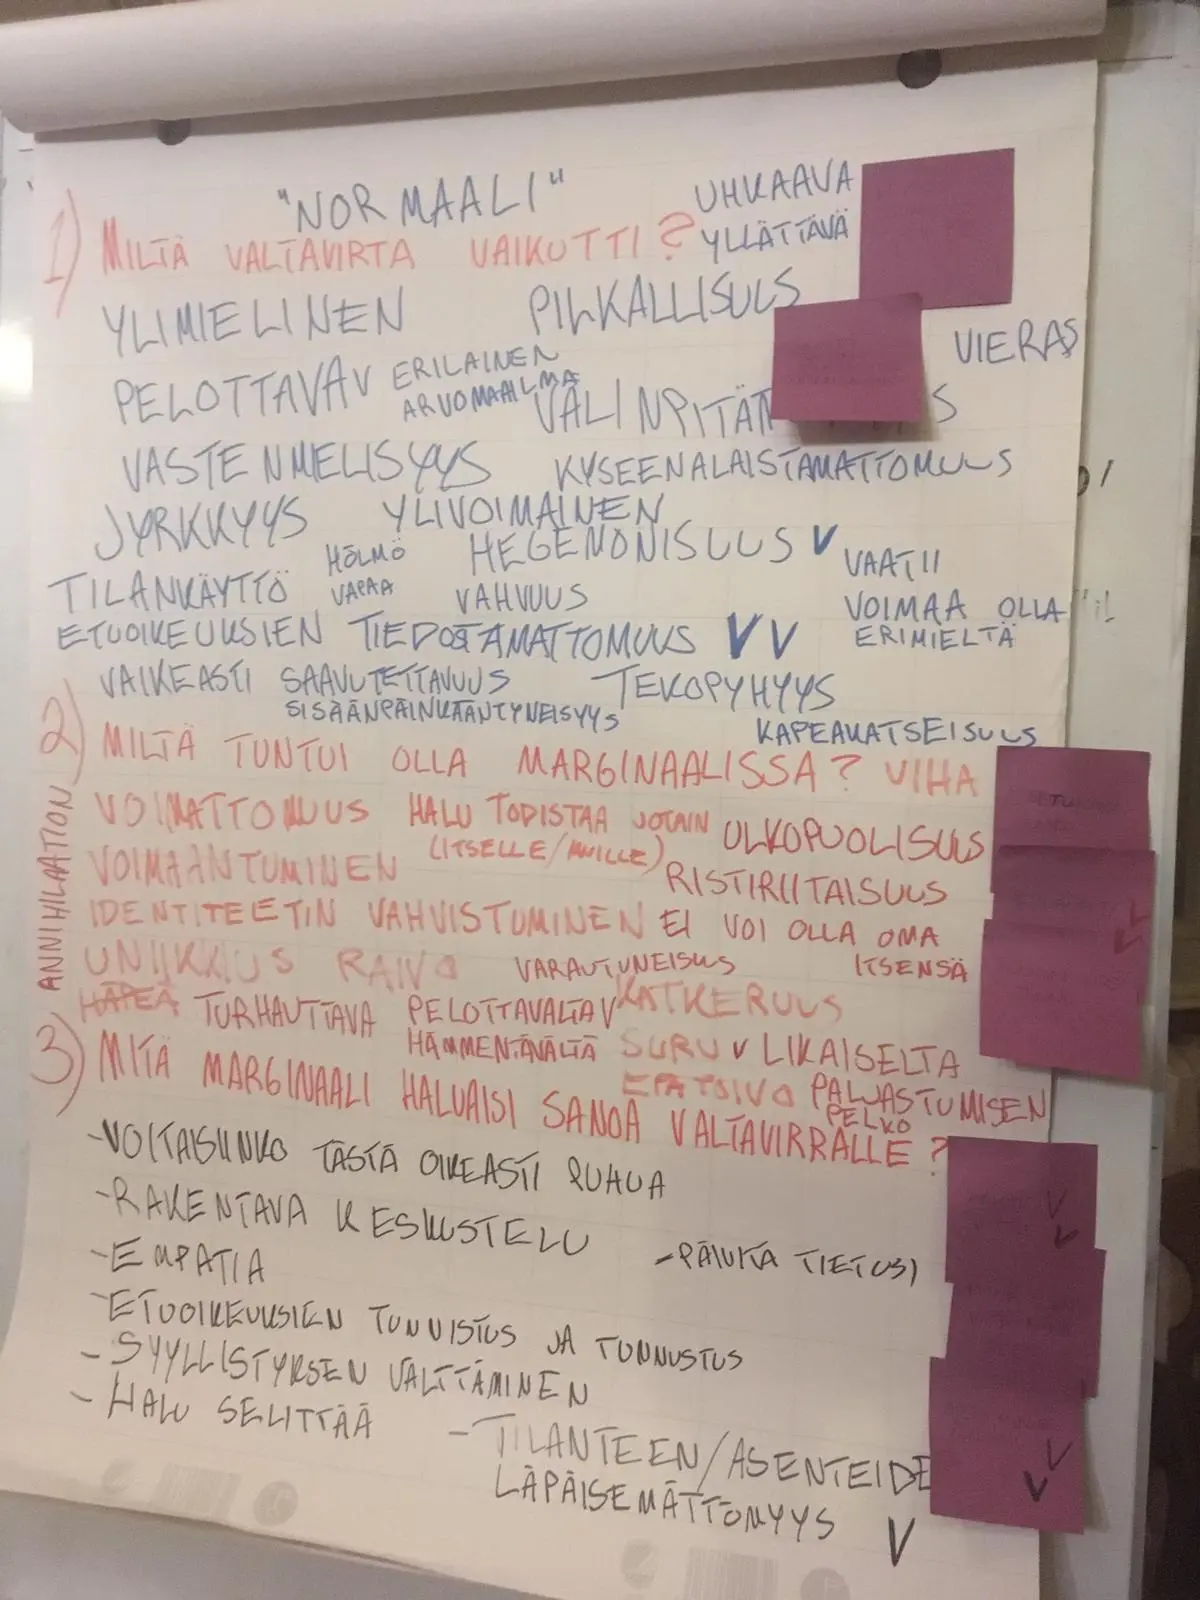 "NORMAALI"
1) MILTÄ VALTAVIRTA VAIKUTTI?
UHKAAVA
YLLÄTTÄVÄ
YLIMIELINEN PILKALLISUUS
VIERAS
PELOTTAVAV ERILAINEN
ARVOMAAILMA
VASTENMIELISYYS KYSEENALAISTAMATTOMUUS
JYRKKYYS YLIVOIMAINEN
HÖLMÖ HEGEMONISUUS V
VAATII
TILANKÄYTTÖ VAPAA VAHVUUS
VOIMAA OLLA
ERIMIELTÄ
ETUOIKEUKSIEN TIEDOSTAMATTOMUUS V V
VAIKEASTI SAAVUTETTAVUUS TEKOPYHYYS
SISÄÄNPÄINKÄÄNTYNEISYYS
KAPEAKATSEISUUS
2) MILTÄ TUNTUI OLLA MARGINAALISSA? VIHA
VOIMATTOMUUS HALU TODISTAA JOTAIN ULKOPUOLISUUS
(ITSELLE/MUILLE)
VOIMAANTUMINEN RISTIRIITAISUUS
IDENTITEETIN VAHVISTUMINEN EI VOI OLLA OMA
ITSENSÄ
ANNIHILAATION
UNIIKKIUS RAIVO VARAUTUNEISUUS
HÄPEÄ TURHAUTTAVA PELOTTAVALTAV KATKERUUS
HÄMMENTÄVÄLTÄ SURU V LIKAISELTA
EPÄTOIVO PALJASTUMISEN
PELKO
3) MITÄ MARGINAALI HALUAISI SANOA VALTAVIRRALLE?
-VOITAISIINKO TÄSTÄ OIKEASTI PUHUA
-RAKENTAVA KESKUSTELU
-PÄIVITÄ TIETOSI
-EMPATIA
-ETUOIKEUKSIEN TUNNISTUS JA TUNNUSTUS
-SYYLLISTYKSEN VÄLTTÄMINEN
-HALU SELITTÄÄ
-TILANTEEN/ASENTEIDE
LÄPÄISEMÄTTÖMYYS V